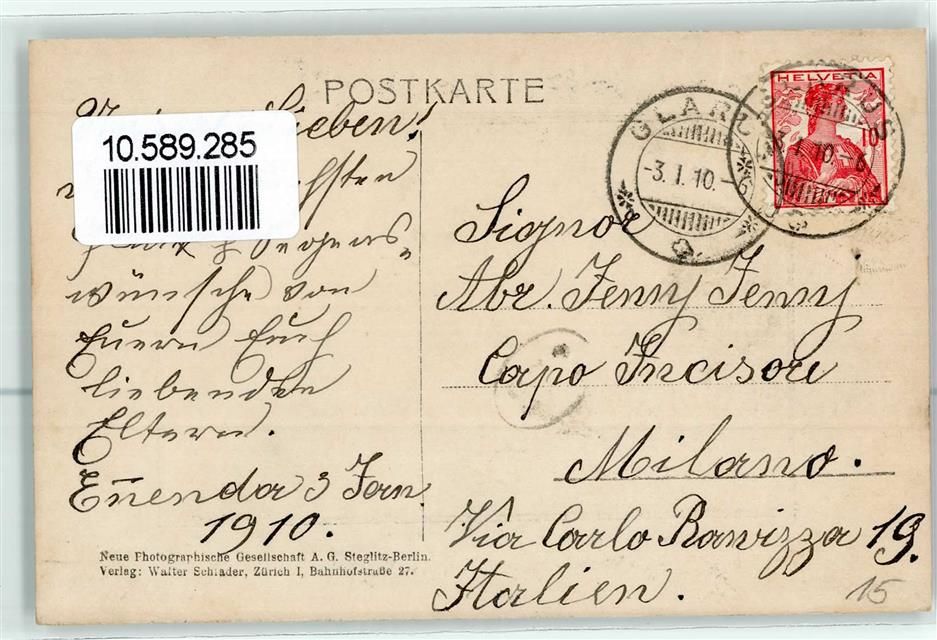 POSTKARTE
Lieben!
10.589.285
wünsche von
Euern Euch
liebenden
Eltern.
Eñenda 3 Jenn
1910.
Neue Photographische Gesellschaft A. G. Steglitz-Berlin.
Verlag: Walter Schrader, Zürich I, Bahnhofstraße 27.
HELVETIA
10
GLARUS
-3. I. 10.-6
Signor
Abr. Jenny Jenny
Capo Incisore
Milano.
Via Carlo Ravizza 19.
Italien.
15